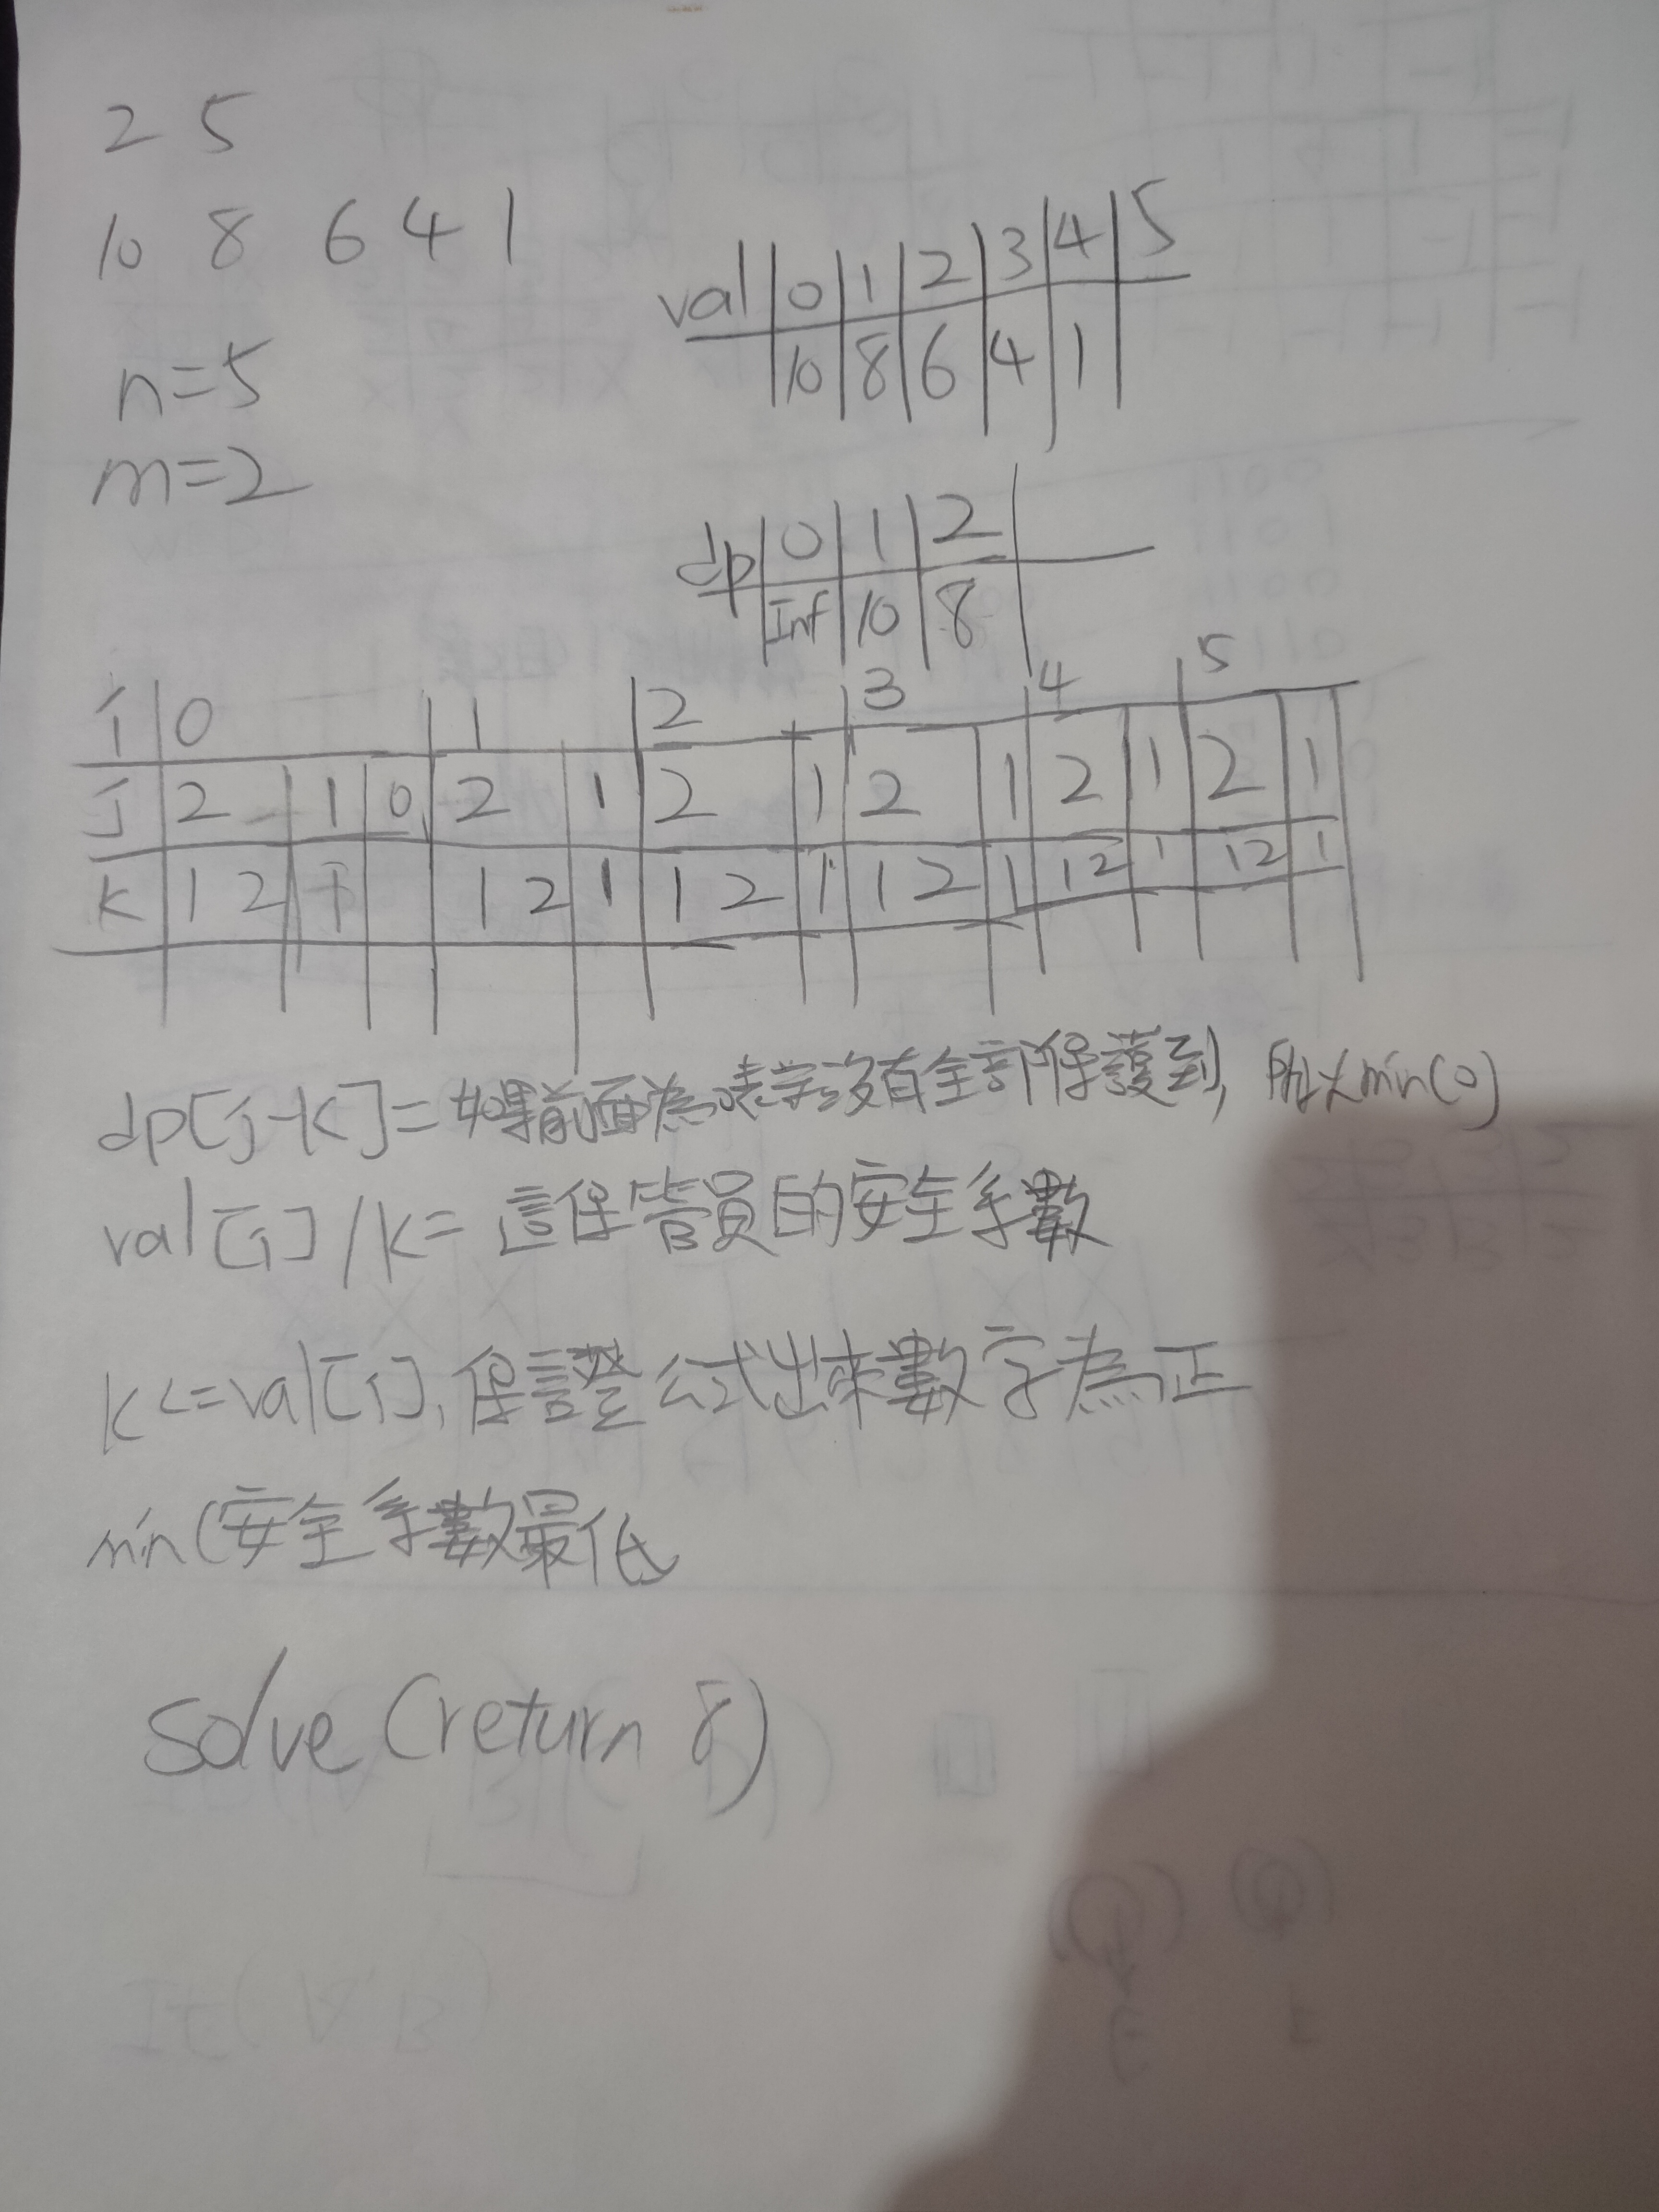 2 5
10 8 6 4 1
n=5
m=2
val 0 1 2 3 4 5
10 8 6 4 1
dp 0 1 2
Inf 10 8
i 0 1 2 3 4 5
j 2 1 0 2 1 2 1 2 1 2 1 2 1
K 1 2 1 1 2 1 1 2 1 1 2 1 1 2 1 1 2 1
dp[j-K]=如果前面為0表示沒有全部保護到, 所以min(0)
val[i]/K=這保管員的安全係數
K<=val[i], 保證公式出來數字為正
min(安全係數最低
solve(return 8)